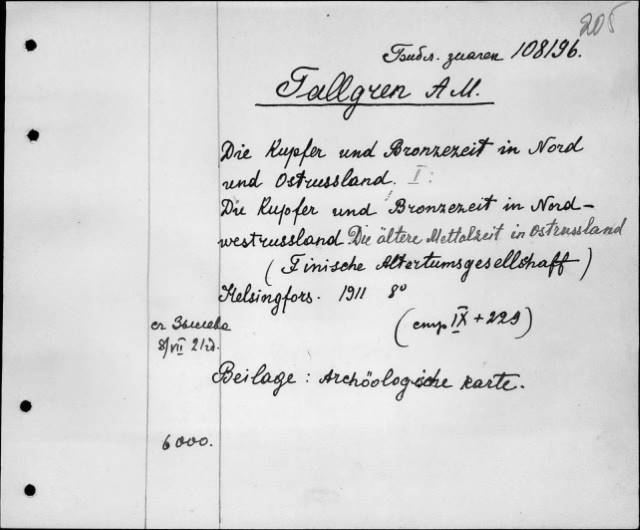 205
108196.
Tallgren A M.
Die Kupfer und Bronzezeit in Nord
und Ostrussland. I:
Die Kupfer und Bronzezeit in Nord-
westrussland. Die ältere Mettalzeit in Ostrussland
(Finische Altertumsgesellshaff)
Helsingfors. 1911 8°
(стр IX + 229)
8/VII 21г.
Beilage: Archöologische karte.
6000.